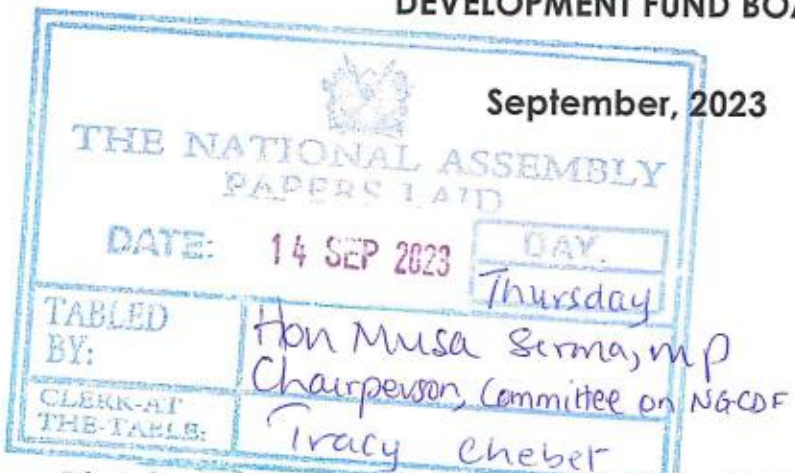 DEVELOPMENT FUND BOA
September, 2023
THE NATIONAL ASSEMBLY
PAPERS LAID
DATE: 14 SEP 2023 DAY.
Thursday
TABLED BY: Hon Musa Sirma, MP
Chairperson, Committee on NGCDF
CLERK-AT THE-TABLE: Tracy Chebet